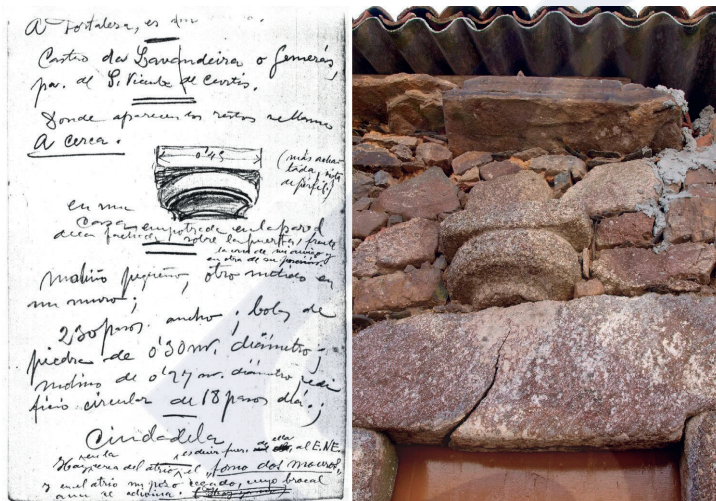 A Fortaleza, es un
Castro da Lavandeira o Gemerás,
pa. de S. Vicente de Curtis.
Donde aparecen los restos se llama
A cerca.
0'45
(más achatada, vista
de perfil)
en una
casa, empotrada en la pared
de la fachada sobre la puerta; frente
la una de un amigo y
en otra de su posesión.
Molino pequeño, otro metido en
un muro;
230 pasos ancho; bolos de
piedra de 0'30 m. diámetro;
molino de 0'27 m. diámetro; edi
ficio circular de 18 pasos día.;
Ciudadela
al E.NE.
Hay cerca del atrio, el "forno dos mouros,
y en el atrio un pozo cegado, cuyo brocal
aun se adivina.